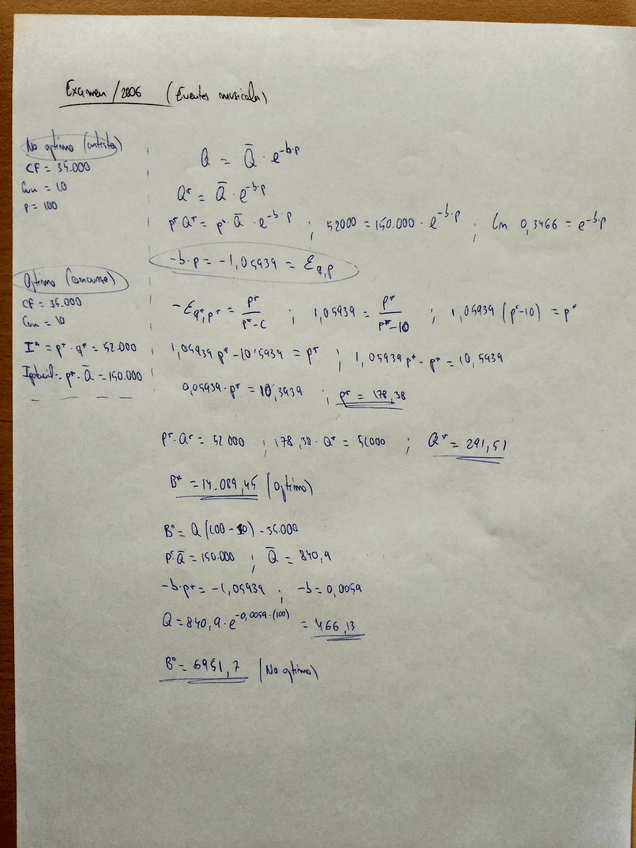 Examen/2006 (Eventos musicales)
No optimo (artista)
CF = 35.000
Cun = 10
P = 100
Optimo (concurso)
CF = 35.000
Cun = 10
I* = p* · q* = 52.000
Ipotencial = p* · Q̄ = 150.000
Q = Q̄ · e^-b·p
Q* = Q̄ · e^-b·p
p*·Q* = p*·Q̄ · e^-b·p ; 52000 = 150.000 · e^-b·p ; Ln 0,3466 = e^-b·p
-b·p = -1,05939 = Ɛq,p
-Ɛq*,p* = p*/(p*-c) ; 1,05939 = p*/(p*-10) ; 1,05939 (p*-10) = p*
1,05939 p* - 10'5939 = p* ; 1,05939 p* - p* = 10,5939
0,05939·p* = 10,5939 ; p* = 178,38
p*·Q* = 52000 ; 178,38·Q* = 52000 ; Q* = 291,51
B* = 14.089,45 (Optimo)
Bº = Q (100-10) - 35.000
p*Q̄ = 150.000 ; Q̄ = 840,9
-b·p* = -1,05939 ; -b = 0,0059
Q = 840,9 · e^-0,0059·(100) = 466,13
Bº = 6951,7 (No optimo)